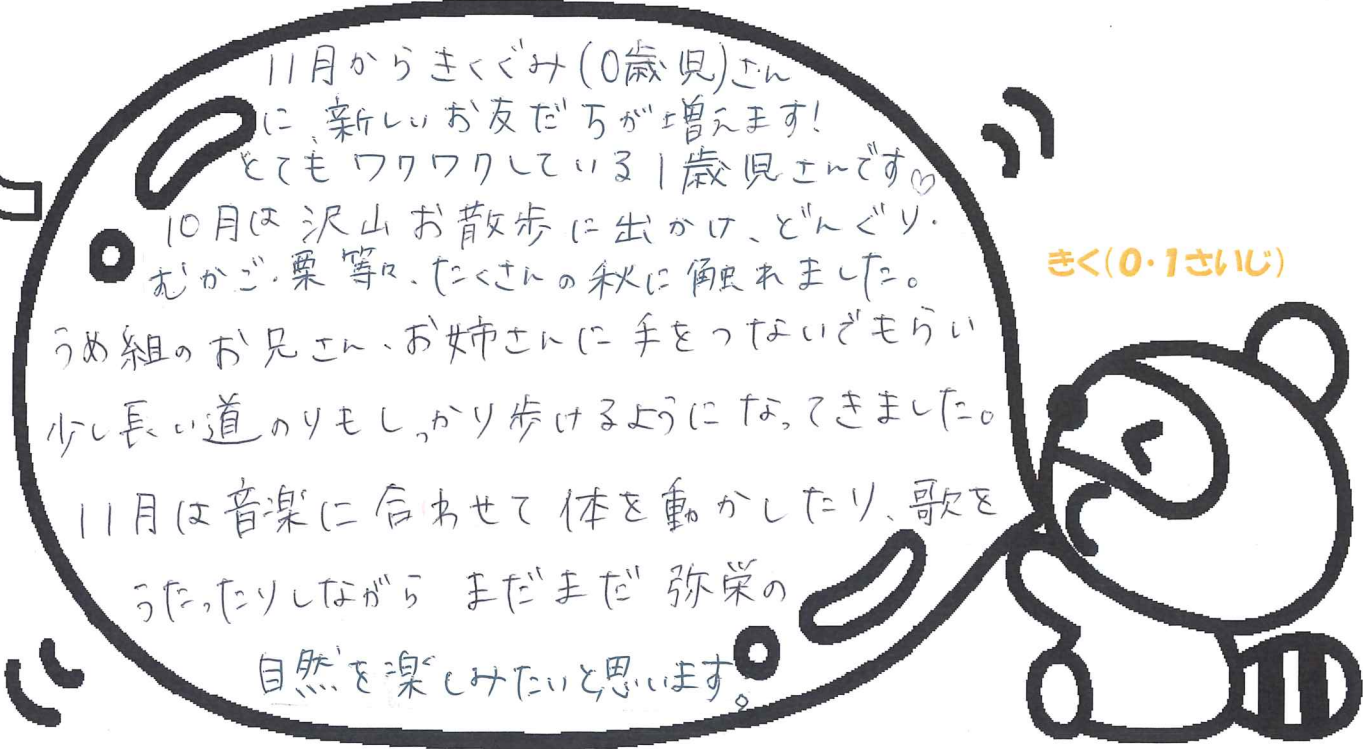 11月からきくぐみ(0歳児)さん
に、新しいお友だちが増えます!
とてもワクワクしている1歳児さんです♡
10月は沢山お散歩に出かけ、どんぐり・
むかご・栗等々、たくさんの秋に触れました。
うめ組のお兄さん、お姉さんに手をつないでもらい
少し長い道のりもしっかり歩けるようになってきました。
11月は音楽に合わせて体を動かしたり、歌を
うたったりしながら まだまだ 弥栄の
自然を楽しみたいと思います。
きく(0・1さいじ)